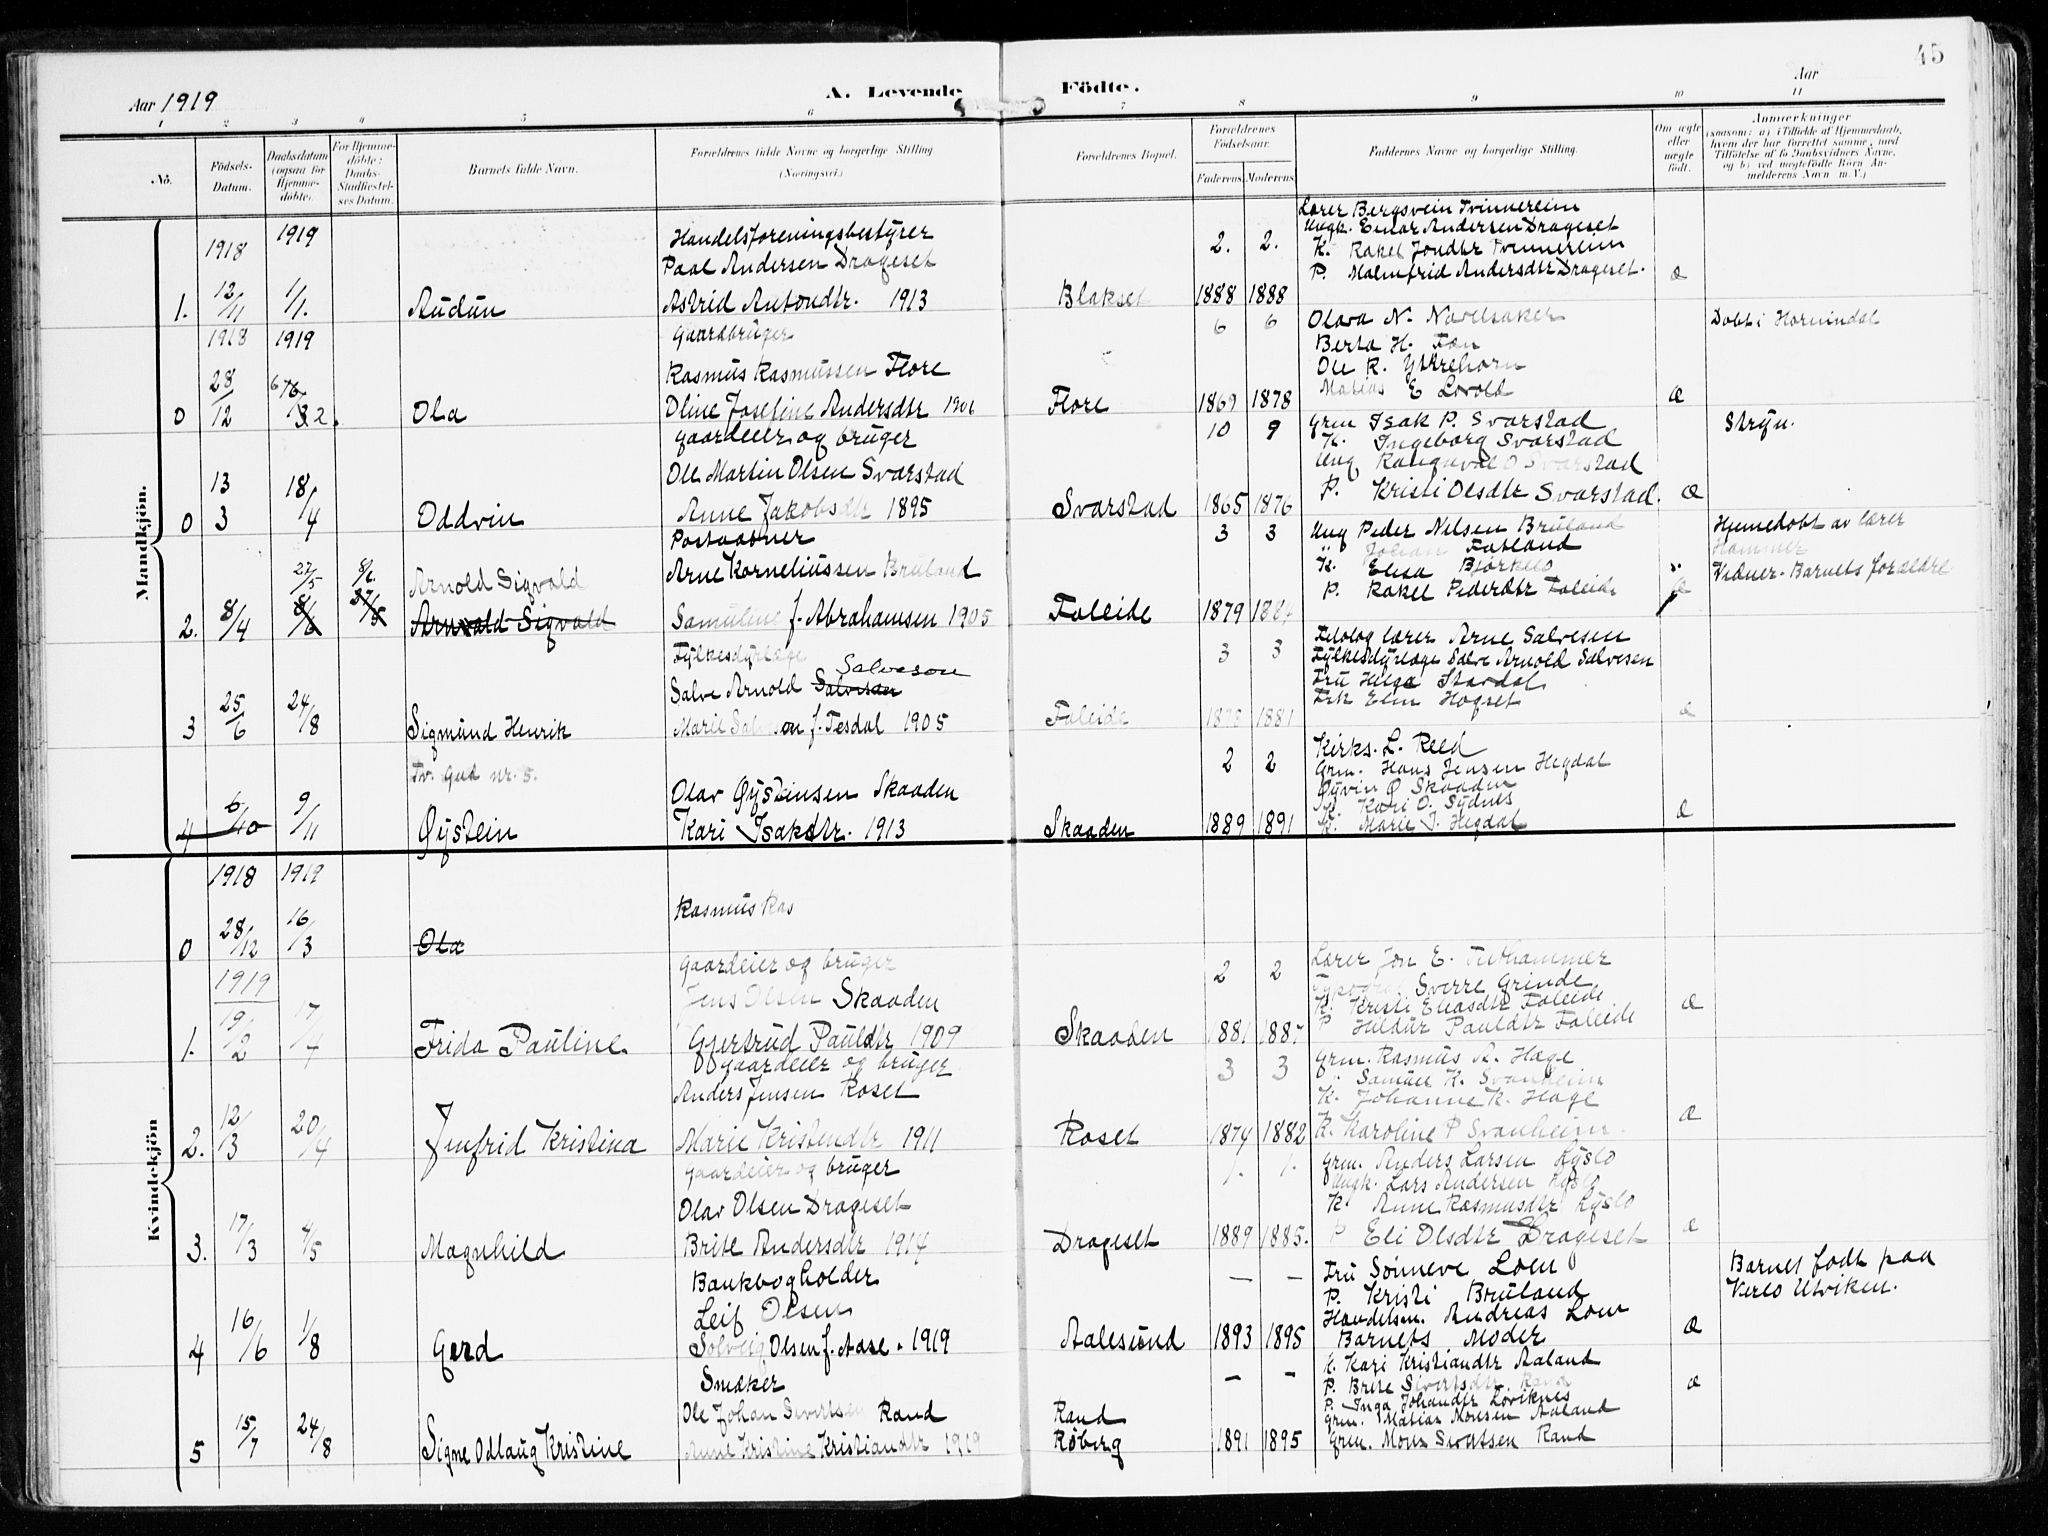 45
Aar 1919
A. Levende Födte.
Aar
1 2 3 4 5 6 7 8 9 10 11
No.
Födsels-Datum.
Daabsdatum (ogsaa for Hjemmedöbte).
For Hjemmedöbte: Daabs-Stadfæstelses Datum.
Barnets fulde Navn.
Forældrenes fulde Navne og borgerlige Stilling (Næringsvei.)
Forældrenes Bopæl.
Forældrenes Födselsaar.
Faderens. Moderens.
Faddernes Navne og borgerlige Stilling.
Om ægte eller uægte födt.
Anmærkninger (saasom: a) i Tilfælde af Hjemmedaab, hvem der har forrettet samme, med Tilföielse af to Daabsvidners Navne, og b) ved uægtefödte Börn Anmelderens Navn m. V.)
Mandkjön.
1. 1918 12/11 1919 1/1. Audun
Handelsforeningsbestyrer
Paal Andersen Drageset
Astrid Antondtr. 1913
Blakset
2. 2.
1888 1888
Lærer Bergsvein Tvinnereim
Ungk. Einar Andersen Drageset
K. Rakel Jondtr Tvinnereim
P. Malmfrid Andersdtr Drageset.
æ
0 1918 28/12 1919 Ola
Gaardbruger
Rasmus Rasmussen Flore
Oline Josefine Andersdtr 1906
Flore
6 6
1869 1878
Olava N. Navelsaker
Berta H. Fon
Ole R. Ytrehorn
Matias E Lovold
æ
Døbt i Hornindal
0 13/3 18/4 Oddvin
gaardeier og bruger
Ole Martin Olsen Svarstad
Anne Jakobsdtr 1895
Svarstad
10 9
1865 1876
Grm Isak P. Svarstad
K. Ingeborg Svarstad
Ung Rangnval O Svarstad
P. Kristi Olsdtr Svarstad.
æ
Stryn.
2. 8/4 27/5 8/6 Arnold Sigvald
Arnvald Sigvald
Postaabner
Arne Korneliussen Bruland
Samuline f. Abrahamsen 1905
Faleide
3 3
1879
Ung Peder Nilsen Bruland
" Johan Fatland
K. Elisa Bjørkelo
P. Rakel Pedersdtr Faleide
æ
Hjemedøbt av lærer
Hammer
Vidner - Barnets forældre
3 25/6 24/8 Sigmund Henrik
Fylkesdyrlæge
Salve Arnold Salveson
Marie Salveson f. Tesdal 1905
Faleide
3 3
1878 1881
Filolog lærer Arne Salvesen
Fylkesdyrlæge Salve Arnold Salvesen
Fru Helga Stardal
Frk Elin Hogset
æ
4 6/10 9/11 Øystein
Olav Øysteinsen Skaaden
Kari Isaksdtr. 1913
Skaaden
2 2
1889 1891
Kirks. L. Reed
Grm. Hans Jensen Hegdal
Øyvin Ø Skaaden
K. Kari O. Sydnes
K. Marie J. Hegdal
æ
Kvindekjön
0 1918 28/12 1919 16/3 Ola
Rasmus Ras
1. 1919 19/2 17/4 Frida Pauline
Gaardeier og bruger
Jens Olsen Skaaden
Gjertrud Pauldtr 1909
Skaaden
2 2
1881 1887
Lærer Jon E.
Typograf Sverre Grinde
K. Kristi Eliasdtr Faleide
P Hildur Pauldtr Faleide
æ
2. 12/3 20/4 Jnfrid Kristina
Gaardeier og bruger
Anders Jensen Roset
Marie Kristendtr 1911
Roset
3 3
1874 1882
Grm. Rasmus A. Hage
" Samuel K. Svanheim
K. Johanne K. Hage
K. Karoline P Svanheim.
æ
3. 17/3 4/5 Magnhild
Gaardeier og bruger
Olav Olsen Drageset
Brite Andersdtr 1914
Drageset
1. 1.
1889 1885.
Grm. Anders Larsen Lyslo
Ungk. Lars Andersen Lyslo
K. Anne Rasmusdtr Lyslo
P Eli Olsdtr Drageset
æ
4 16/6 1/8 Gerd
Bankbogholder
Leif Olsen
Solveig Olsen f. Aase. 1919
Aalesund
— —
1893 1895
Fru Sønneve Loen
P. Kristi Bruland
Handelsm. Andreas Loen
Barnets Moder
æ
Barnet født paa
Verlo Utviken.
5 15/7 24/8 Signe Odlaug Kristine
Smøker
Ole Johan Sivertsen Rand
Anne Kristine Kristiandtr 1919
Rand
Røberg
— —
1891 1895
K. Kari Kristiandtr Aaland
P. Brite Sivertsdtr Rand
P. Inga Johandtr Løviknes
Grm. Matias Monsen Aaland
Grm. Mons Sivertsen Rand
æ